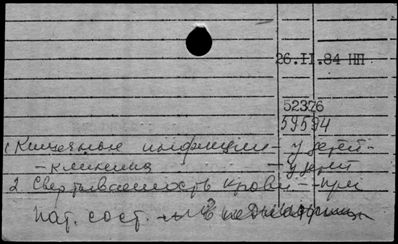 26.II.84 НП
52376
59594
1 Кишечные инфекции - у детей -
- клиника - у детей
2. Свертываемость крови - при
пат. сост. - в педиатрии